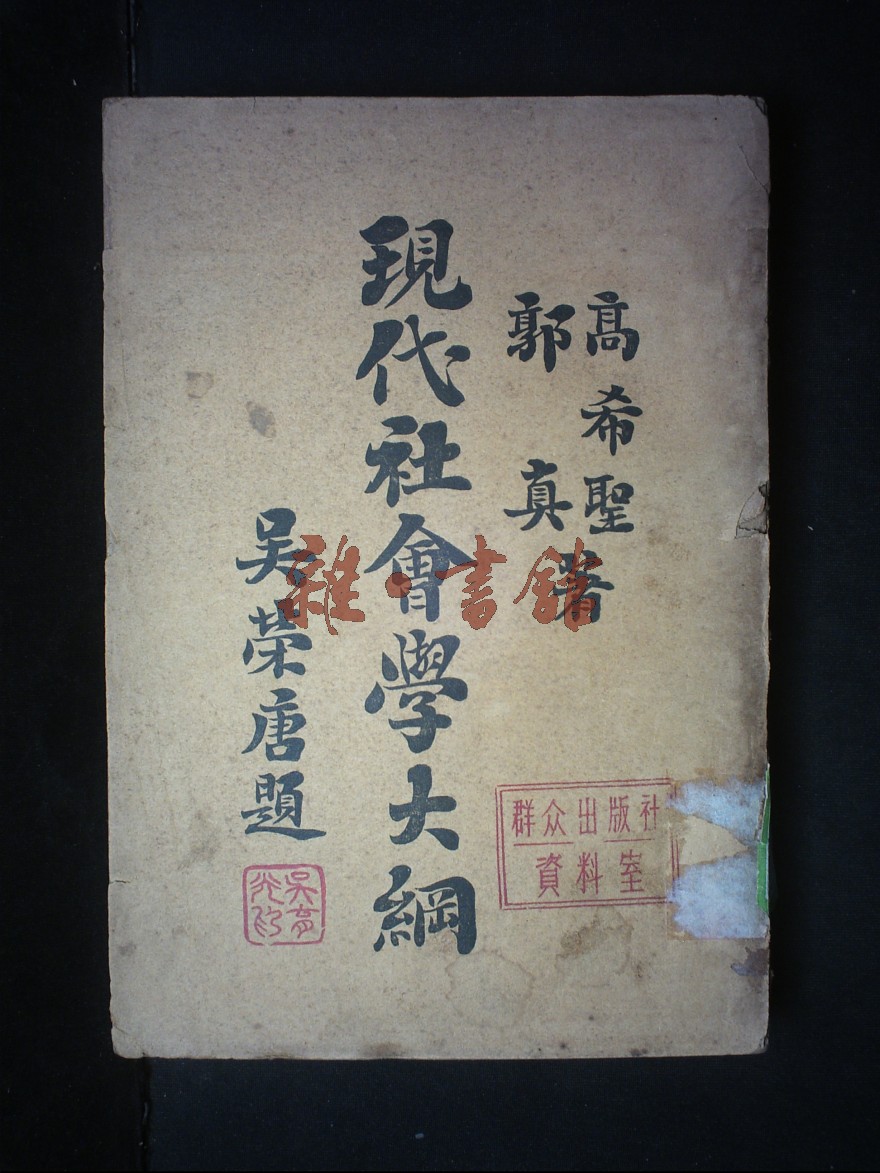 高希聖
郭真
著
現代社會學大綱
吴榮唐題
群众出版社
資料室
雜·書館